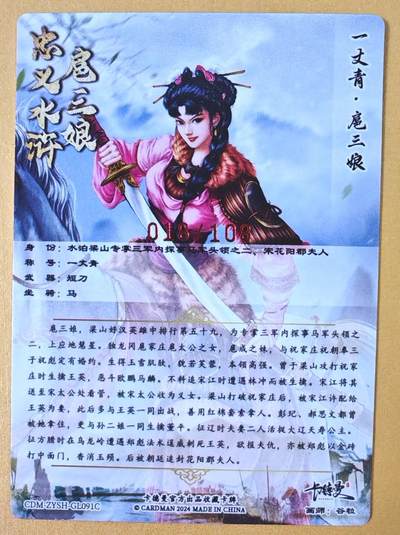 忠义水浒
扈三娘
一丈青·扈三娘
018/108
身 份：水泊梁山专掌三军内探事马军头领之二、宋花阳郡夫人
称 号：一丈青
武 器：短刀
坐 骑：马
扈三娘，梁山好汉英雄中排行第五十九，为专掌三军内探事马军头领之
二，上应地慧星。独龙冈扈家庄扈太公之女，扈成之妹，与祝家庄祝朝奉三
子祝彪定有婚约。生得玉雪肌肤，貌若芙蓉，本领高强。曾于梁山攻打祝家
庄时生擒王英，恶斗欧鹏马麟。不料追宋江时遭遇林冲而被生擒。宋江将其
送至宋太公处看管，被宋太公收为义女。梁山打破祝家庄后，被宋江许配给
王英为妻，此后多与王英一同出战，善用红棉套索拿人。彭玘、郝思文都曾
被她拿住，更与孙二娘一同生擒董平。征辽时夫妻二人活捉大辽天寿公主。
征方腊时在乌龙岭遭遇郑彪法术逼威刺死王英，欲报夫仇，亦被郑彪以金砖
打中面门，香消玉殒。后被朝廷追封花阳郡夫人。
卡德曼
CDM-ZYSH-GL091C
卡德曼官方出品收藏卡牌
© CARDMAN 2024 MADE IN CHINA
画师：谷粒